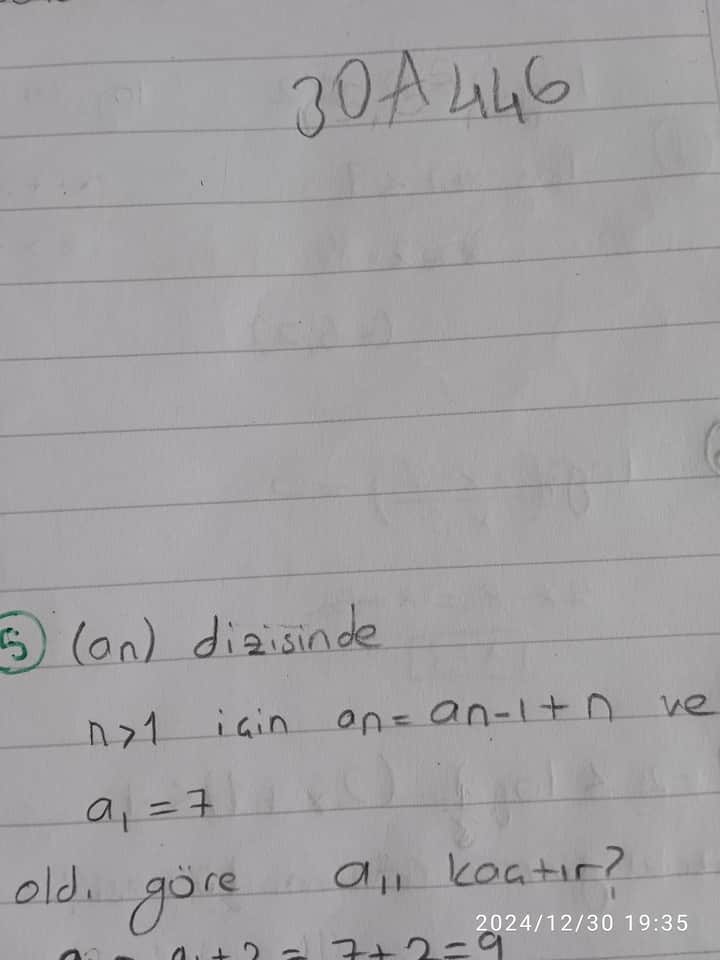 30A446
5 (an) dizisinde
n>1 için an = an-1 + n ve
a₁ = 7
old. göre a₁₁ kaçtır?
2024/12/30 19:35
= a₁+2 = 7+2=9